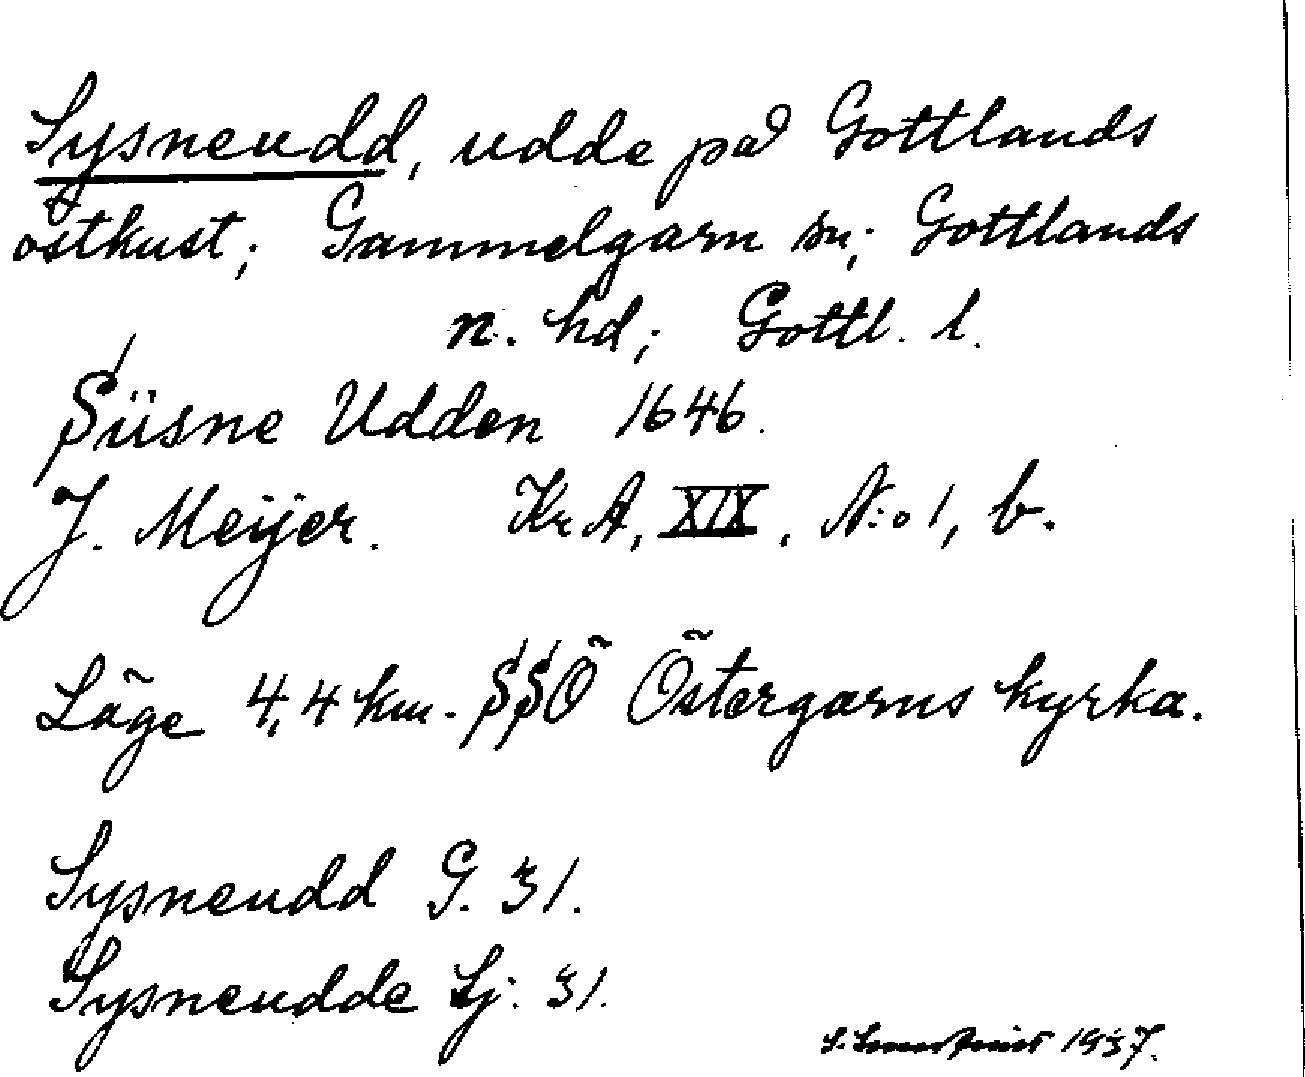 Sysneudd, udde på Gottlands
östkust; Gammelgarn sn; Gottlands
n. hd; Gottl. l.
Süsne Udden 1646.
J. Meÿer. Kr A, XIX, N:o 1, b.
Läge 4,4 km. SSÖ Östergarns kyrka.
Sysneudd G. 31.
Sysneudde Sj. 31.
S. 1937.